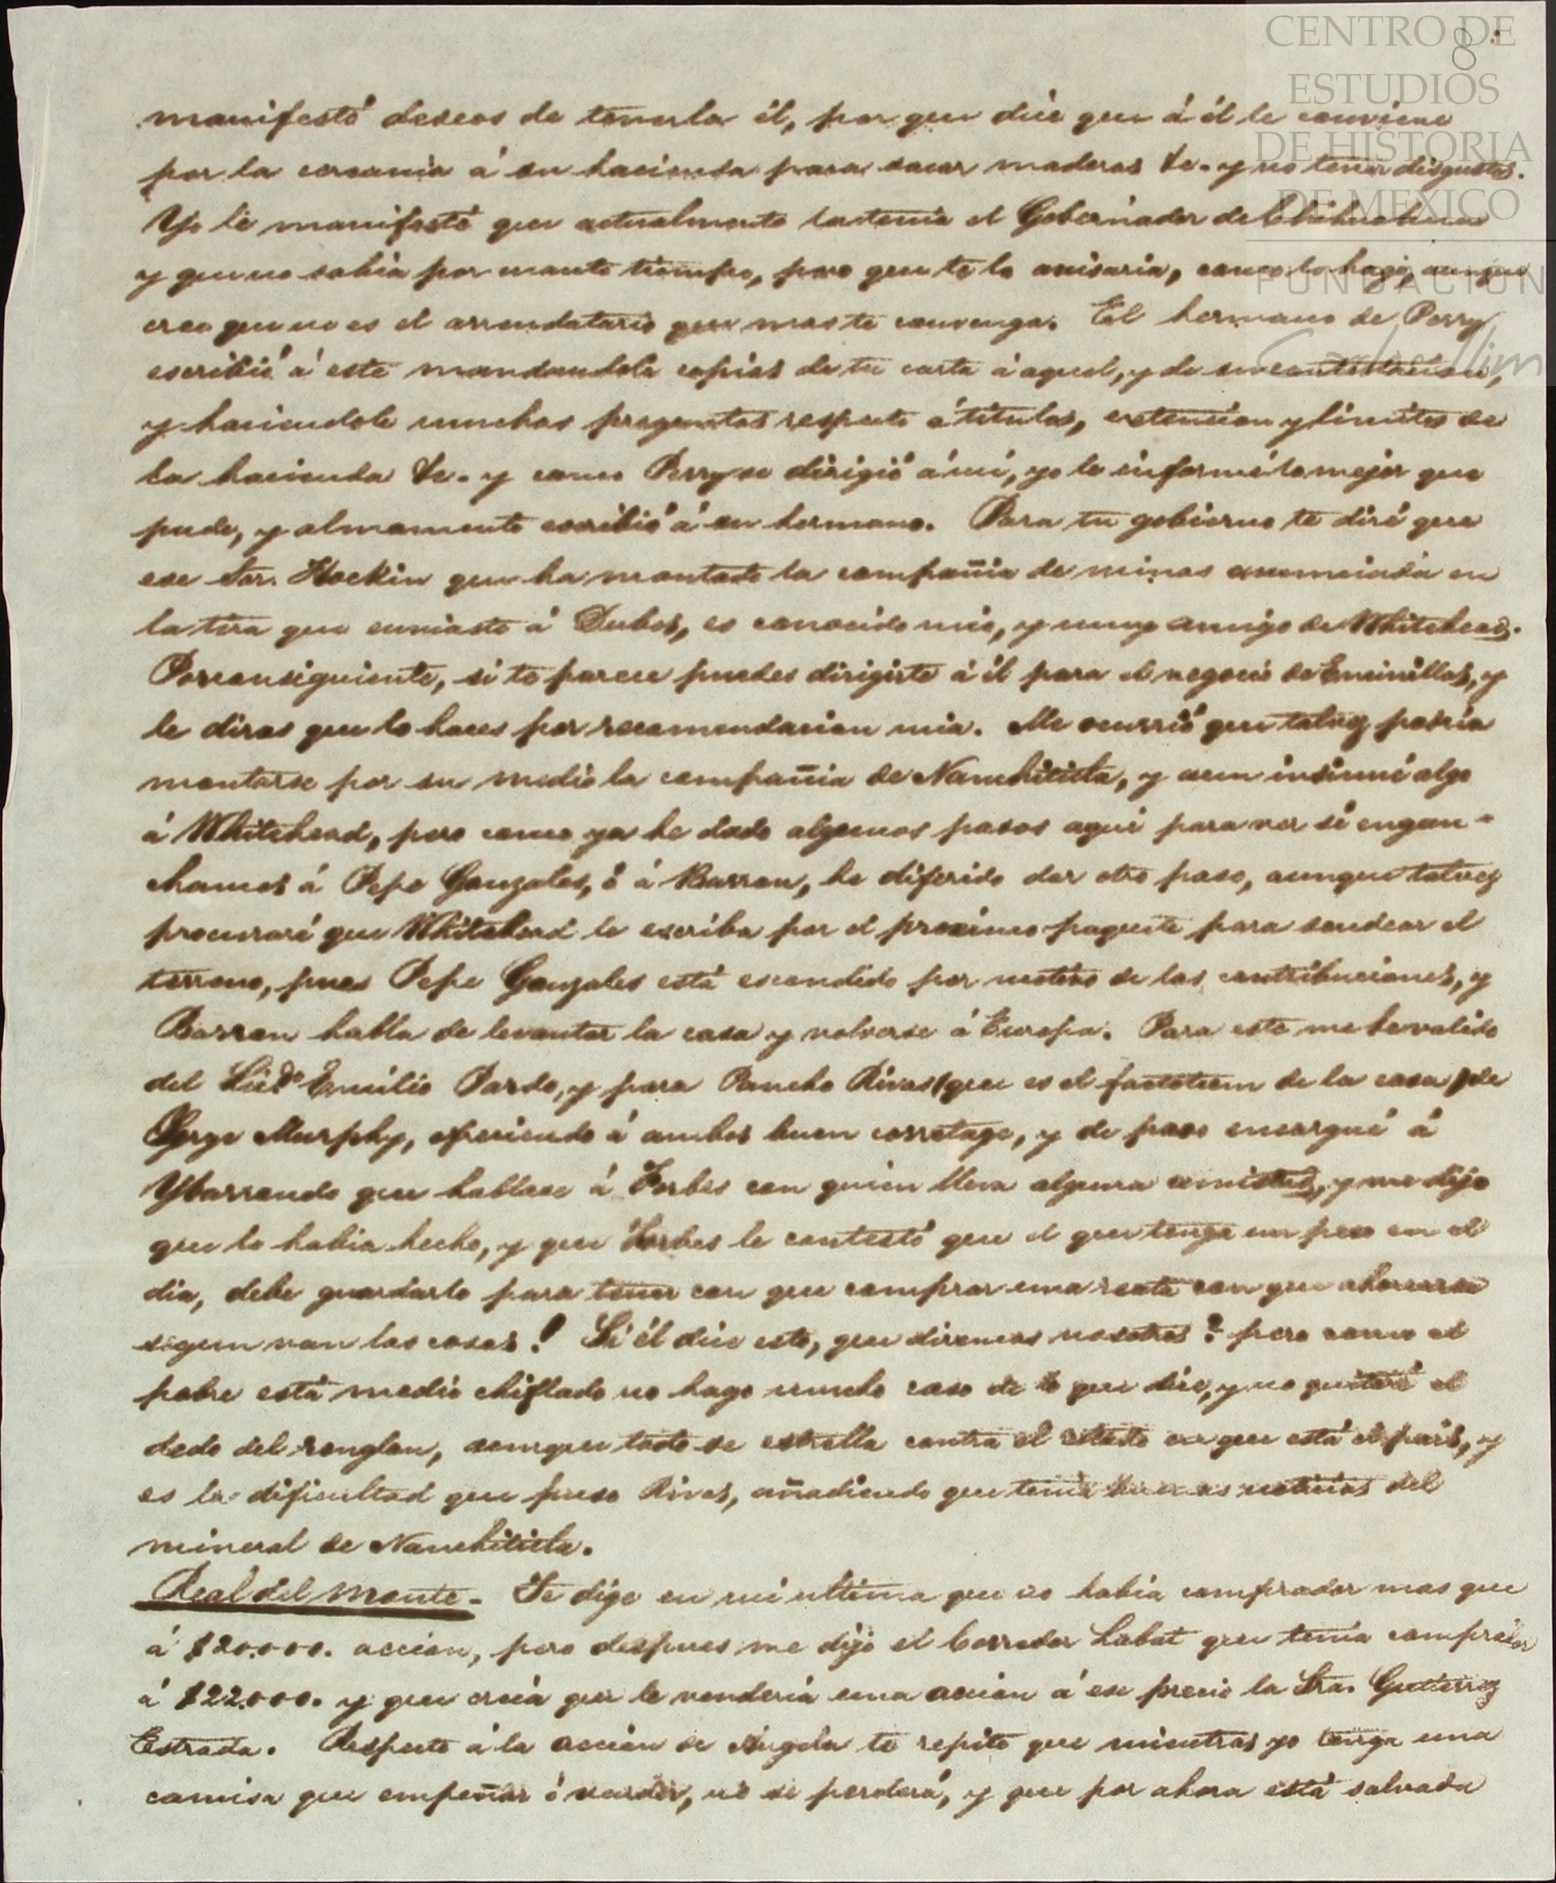 CENTRO DE
ESTUDIOS
DE HISTORIA
DE MEXICO
FUNDACIÓN
8
manifestó deseos de tenerla él, por que dice que á él le conviene
por la cercania á su hacienda para sacar maderas &c. y no tener disgustos.
Yo le manifesté que actualmente la tenia el Gobernador de Chihuahua
y que no sabia por cuanto tiempo, pero que te lo avisaria, como lo hago, aunque
creo que no es el arrendatario que mas te convenga. El hermano de Perry
escribió á este mandandole copias de tu carta á aquel, y de su contestacion,
y haciendole muchas preguntas respecto á titulos, extencion y limites de
la hacienda &c. y como Perry se dirigió á mi, yo le informé lo mejor que
pude, y al momento escribió á su hermano. Para tu gobierno te diré que
ese Sor. Hockin que ha montado la compañia de minas anunciada en
la tira que enviaste á Dubos, es conocido mio, y muy amigo de Whitehead.
Por consiguiente, si te parece puedes dirigirte á él para el negocio de Encinillas, y
le diras que lo haces por recomendacion mia. Me ocurrió que talvez podria
montarse por su medio la compañia de Nanchititla, y aun insinué algo
á Whitehead, pero como ya he dado algunos pasos aqui para ver si engan-
chamos á Pepe Gonzales, ó á Barron, he diferido dar otro paso, aunque talvez
procuraré que Whitehead le escriba por el proximo paquete para sondear el
terreno, pues Pepe Gonzales está escondido por motivo de las contribuciones, y
Barron habla de levantar la casa y volverse á Europa. Para este me he valido
del Licdo. Emilio Pardo, y para Pancho Rivas (que es el factotum de la casa) de
Jorge Murphy, ofreciendo á ambos buen corretage, y de paso encargué á
Ybarrondo que hablase á Forbes con quien lleva alguna amistad, y me dijo
que lo habia hecho, y que Forbes le contestó que el que tenga un peso en el
dia, debe guardarlo para tener con que comprar una reata con que ahorcarse
segun van las cosas! Si él dice esto, que diremos nosotros? pero como el
pobre está medio chiflado no hago mucho caso de lo que dice, y no quitaré el
dedo del renglon, aunque todo se estrella contra el estado en que está el pais, y
es la dificultad que puso Rivas, añadiendo que tenia buenas noticias del
mineral de Nanchititla.
Real del Monte. Te dige en mi ultima que no habia comprador mas que
á $20.000. accion, pero despues me dijo el Corredor Labat que tenia comprador
á $22.000. y que creia que le venderia una accion á ese precio la Sra. Gutierrez
Estrada. Respecto á la accion de Angela te repito que mientras yo tenga una
camisa que empeñar ó vender, no se perderá, y que por ahora está salvada